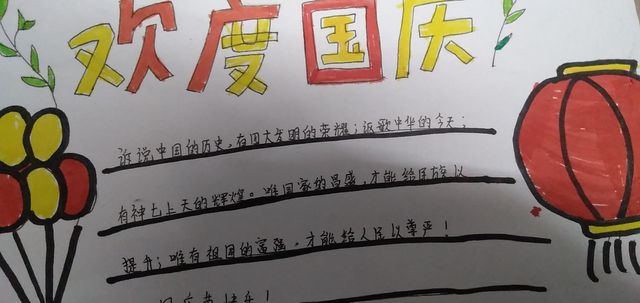 欢度国庆
诉说中国的历史,有四大发明的荣耀;讴歌中华的今天;
有神七上天的辉煌。唯国家的昌盛,才能给民族以
提升;唯有祖国的富强。才能给人民以尊严!
国庆节快乐!